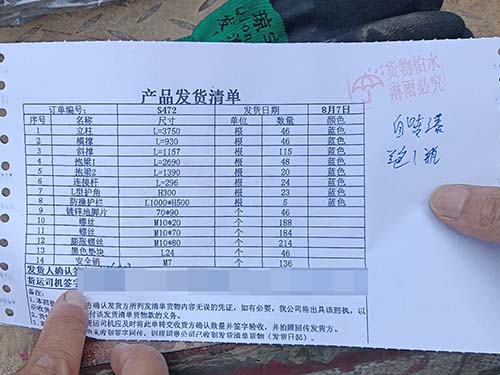 产品发货清单
订单编号: S472 发货日期 8月7日
序号 名称 尺寸 单位 数量 颜色
1 立柱 L=3750 根 46 蓝色
2 横撑 L=930 根 46 蓝色
3 斜撑 L=1157 根 115 蓝色
4 抱梁1 L=2690 根 48 蓝色
5 抱梁2 L=1390 根 20 蓝色
6 连接杆 L=296 根 24 蓝色
7 L型护角 H300 根 23 蓝色
8 防撞护栏 L1000*H500 根 5 蓝色
9 镀锌地脚片 70*90 个 46
10 螺丝 M10*20 个 188
11 螺丝 M10*70 个 184
12 膨胀螺丝 M10*80 个 214
13 黑色垫块 L24 个 46
14 安全销 M7 个 136
发货人确认签
货运司机签字
备注:
1.本回执 方确认发货方所列发清单货物内容无误的凭证,如有必要,我公司将出具该回执,以
示收货 付该发清单货物款的义务。
2. 货运司机应及时将此单转交收货方确认数量并签字验收,并拍照回传发货方。
货物怕水
淋雨必究
自喷漆